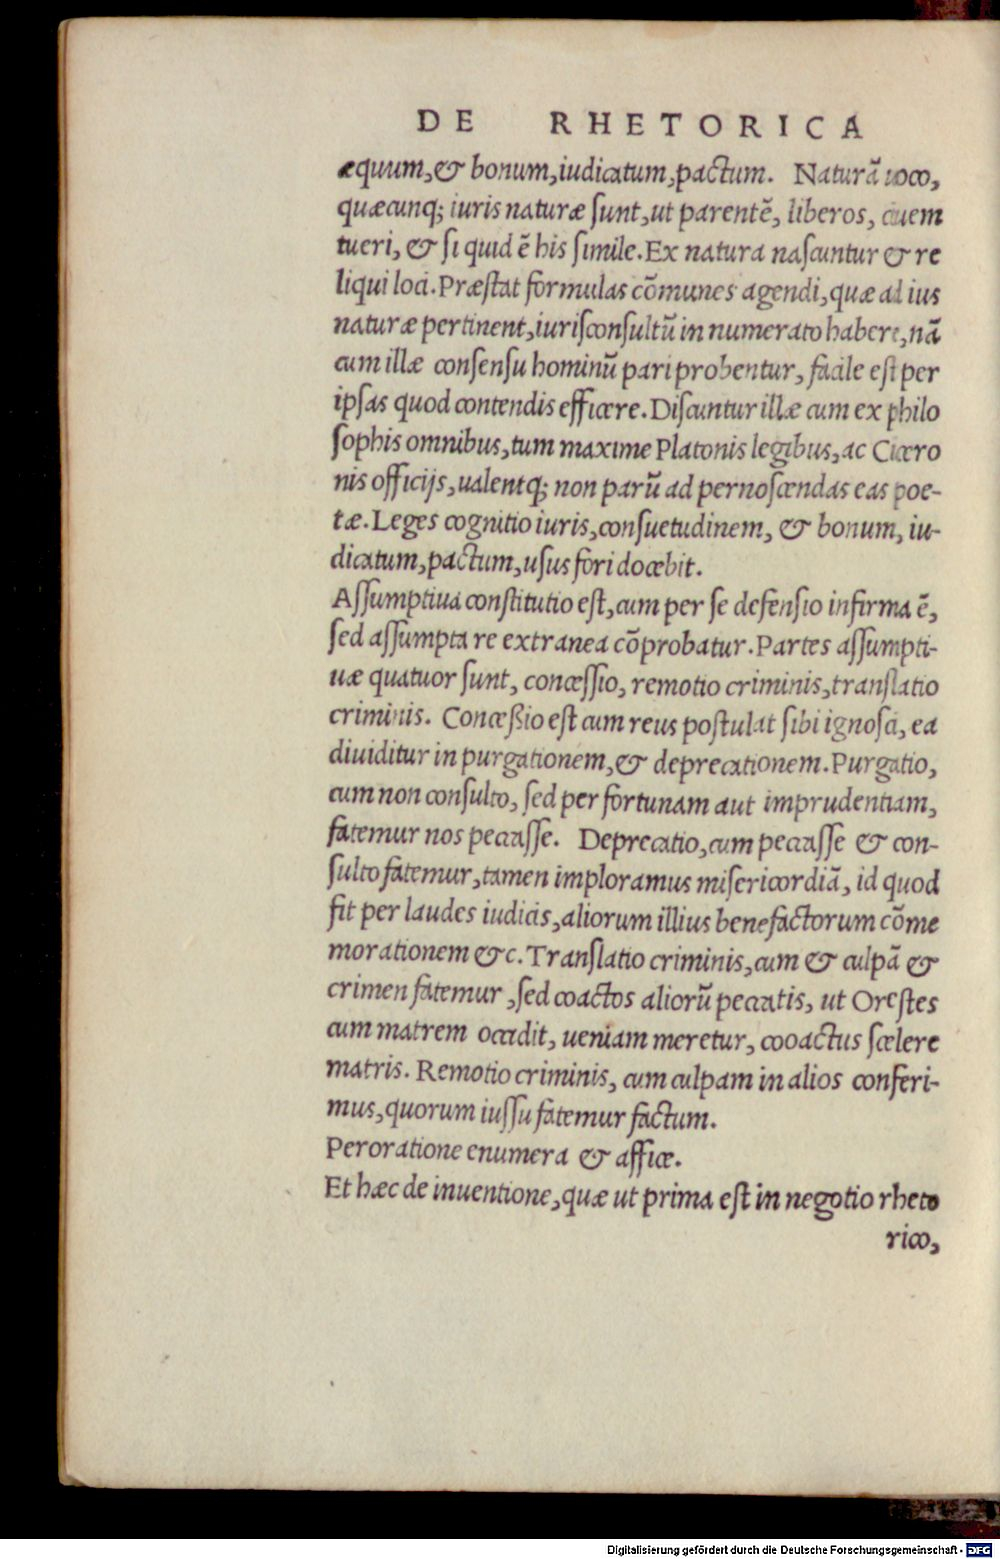 DE RHETORICA
æquum, & bonum, iudicatum, pactum. Naturā uoco,
quæcunq; iuris naturæ sunt, ut parentē, liberos, ciuem
tueri, & si quid ē his simile. Ex natura nascuntur & re
liqui loci. Præstat formulas cōmunes agendi, quæ ad ius
naturæ pertinent, iurisconsultū in numerato habere, nā
cum illæ consensu hominū pari probentur, facile est per
ipsas quod contendis efficere. Discuntur illæ cum ex philo
sophis omnibus, tum maxime Platonis legibus, ac Cicero
nis officijs, ualentq; non parū ad pernoscendas eas poe-
tæ. Leges cognitio iuris, consuetudinem, & bonum, iu-
dicatum, pactum, usus fori docebit.
Assumptiua constitutio est, cum per se defensio infirma ē,
sed assumpta re extranea cōprobatur. Partes assumpti-
uæ quatuor sunt, concessio, remotio criminis, translatio
criminis. Conceßio est cum reus postulat sibi ignosci, ea
diuiditur in purgationem, & deprecationem. Purgatio,
cum non consulto, sed per fortunam aut imprudentiam,
fatemur nos peccasse. Deprecatio, cum peccasse & con-
sulto fatemur, tamen imploramus misericordiā, id quod
fit per laudes iudicis, aliorum illius benefactorum cōme
morationem &c. Translatio criminis, cum & culpā &
crimen fatemur, sed coactos aliorū peccatis, ut Orestes
cum matrem occidit, ueniam meretur, cooactus scelere
matris. Remotio criminis, cum culpam in alios conferi-
mus, quorum iussu fatemur factum.
Peroratione enumera & affice.
Et hæc de inuentione, quæ ut prima est in negotio rheto
rico,
Digitalisierung gefördert durch die Deutsche Forschungsgemeinschaft - DFG